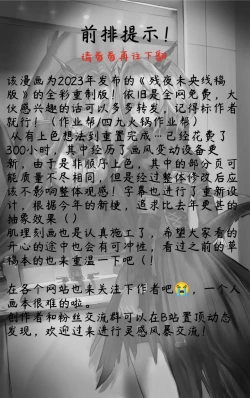 前排提示！
请勇勇再往下翻
该漫画为2023年发布的《残夜未央线稿
版》的全彩重制版！依旧是全网免费，大
伙感兴趣的话可以多多转发，记得标作者
就行！（作业帮/四九火锅作业帮）
从有上色想法到重置完成…已经花费了
300小时，其中经历了画风变动设备更
新，由于是非顺序上色，其中的部分页可
能质量不尽相同，但是经过整体修改后应
该不影响整体观感！字幕也进行了重新设
计，根据今年的新梗，追求比去年更甚的
抽象效果（）
肌理刻画也是认真施工了，希望大家看的
开心的途中也会有可冲性，看过之前的草
稿本的也来重温一下吧（！
在各个网站也来关注下作者吧😭，一个人
画本很难的啦。
创作者和粉丝交流群可以在B站置顶动态
发现，欢迎过来进行灵感风暴交流！